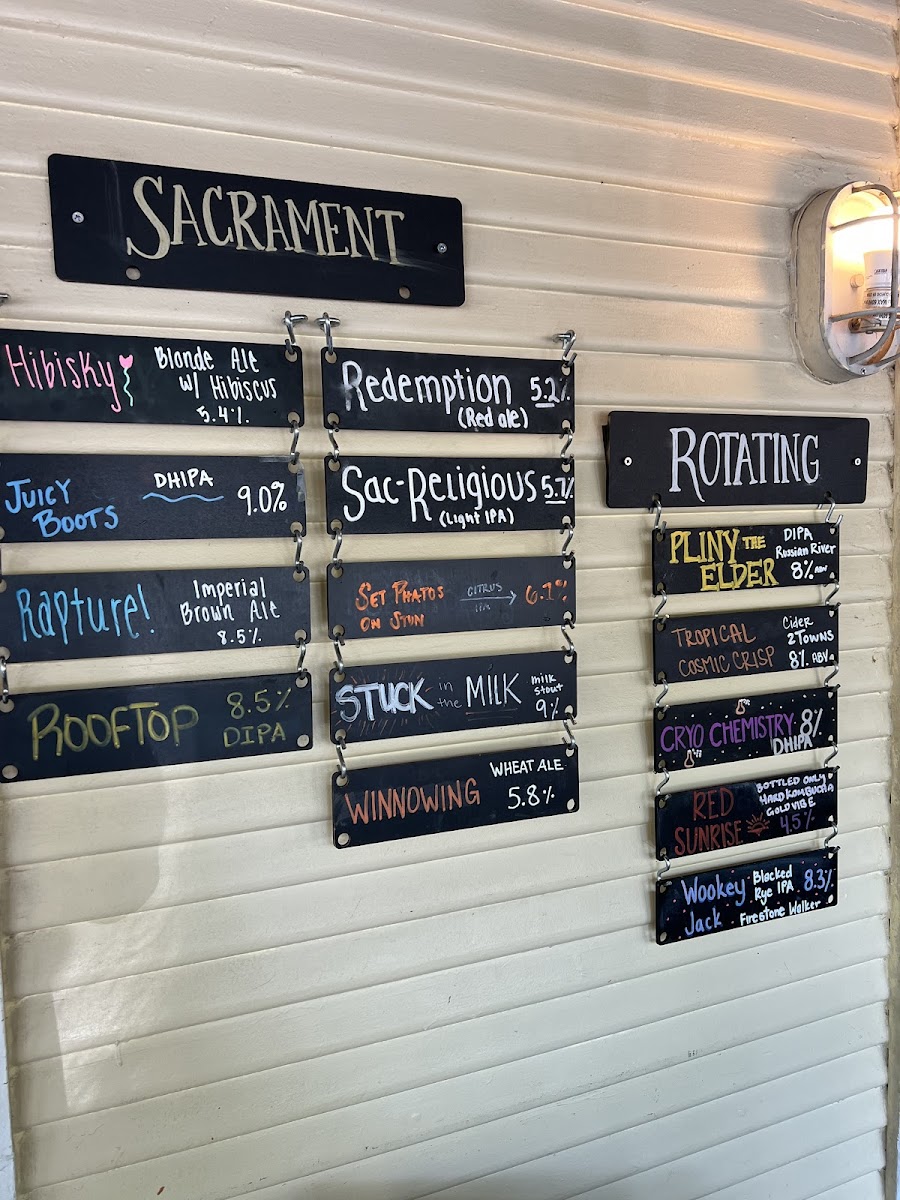 SACRAMENT
Hibisky
Blonde Ale
w/ Hibiscus
5.4%
JUICY
BOOTS
DHIPA
9.0%
Rapture!
Imperial
Brown Ale
8.5%
ROOFTOP
8.5%
DIPA
Redemption 5.2%
(Red ale)
Sac-Religious 5.7%
(Light IPA)
SET PHATOS
ON STUN
CITRUS
IPA
STUCK in the MILK
milk
stout
9%
WINNOWING
WHEAT ALE
5.8%
ROTATING
PLINY THE
ELDER
DIPA
Russian River
8% ABV
TROPICAL
COSMIC CRISP
Cider
2 TOWNS
8% ABV
CRYO CHEMISTRY 8%
DHIPA
RED
SUNRISE
BOTTLED ONLY
HARD KOMBUCHA
GOLD VIBE
4.5%
Wookey
Jack
Blacked
Rye IPA
8.3%
Firestone Walker